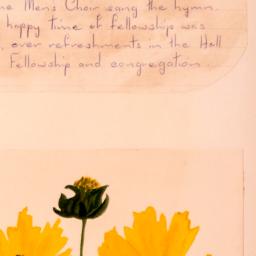 Men's Choir sang the hymn.
happy time of fellowship was
, over refreshments in the Hall
Fellowship and congregation.